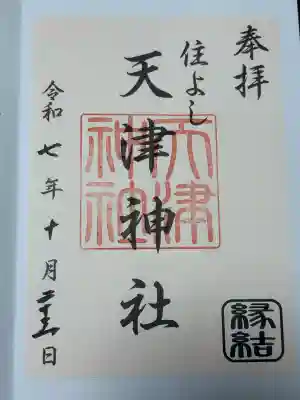 奉拝
住よし
天津神社
天津
神社
令和七年十月二十五日
縁結